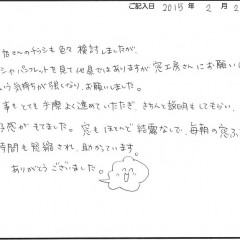 ご記入日 2015年 2月 2
皆さんのチラシも色々検討しましたが、
パンフレットを見て他県ではありますが窓工房さんにお願いし
いう気持ちが強くなり、お願いしました。
事もとても手際よく進めていただき、きちんと説明もしてもらい、
好感がもてました。窓もほとんど結露なしで、毎朝の窓ふ
時間も短縮され、助かっています。
ありがとうございました。